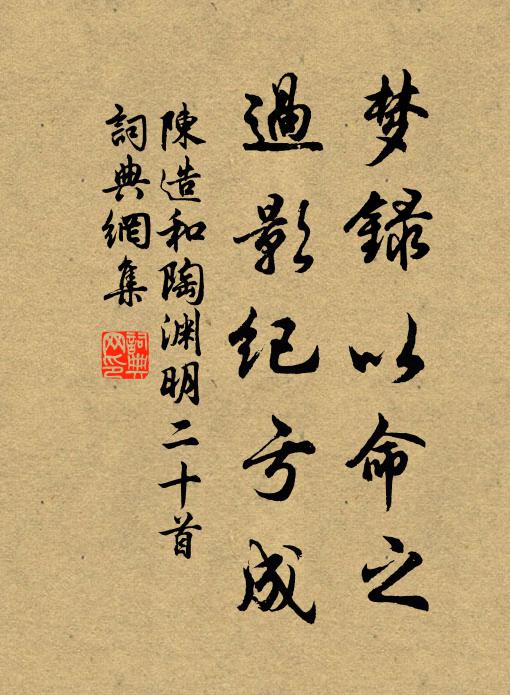 梦録以命之
過影纪亏成
陳造和陶渊明二十首
詞典網集
詞典网印